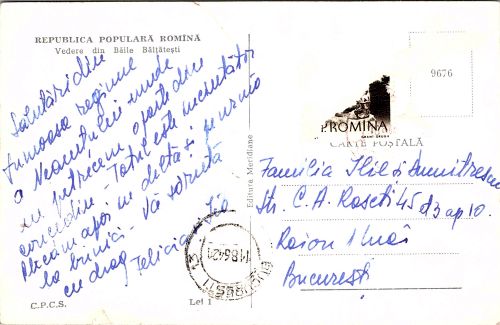 REPUBLICA POPULARĂ ROMÎNĂ
Vedere din Băile Bălțătești
Salutări din
frumoasa regiune
a Neamțului unde
ne petrecem o parte din
concediu. Totul este incîntător
Plecăm apoi în deltă și pe urmă
la bunici. Vă sărută
cu drag Felicia
C.P.C.S.
Lei 1
Editura Meridiane
9676
PROMÎNA
CARTE POȘTALĂ
Familia Ilie Dumitrescu
Str. C. A. Rosetti 45 et 3 ap 10.
Raion 1 Mai
București
BUCUREȘTI